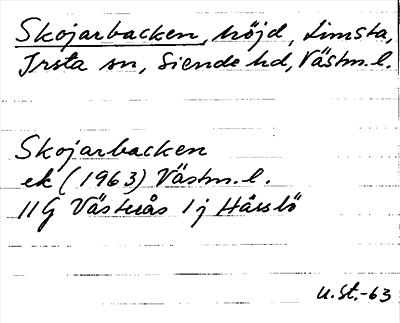 Skojarbacken, höjd, Limsta,
Irsta sn, Siende hd, Västm. l.
Skojarbacken
ek (1963) Västm. l.
11G Västerås 1j Hässlö
U.St.-63